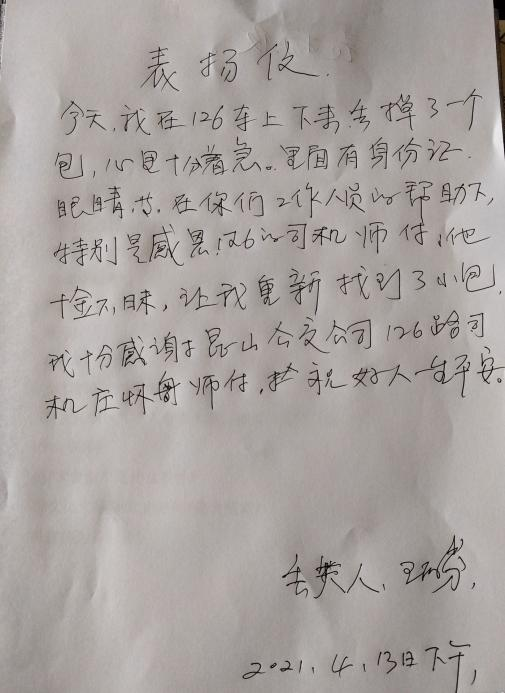 表扬仪.
今天,我在126车上下来丢掉了一个
包,心里十分着急。里面有身份证.
眼睛等,在你们工作人员的帮助下,
特别是感恩126的司机师付,他
十金不昧,让我重新找到了小包,
我十分感谢 昆山公交公司126路司
机庄怀 师付, 祝好人一生平安。
丢 人、王 芬,
2021.4.13日下午,